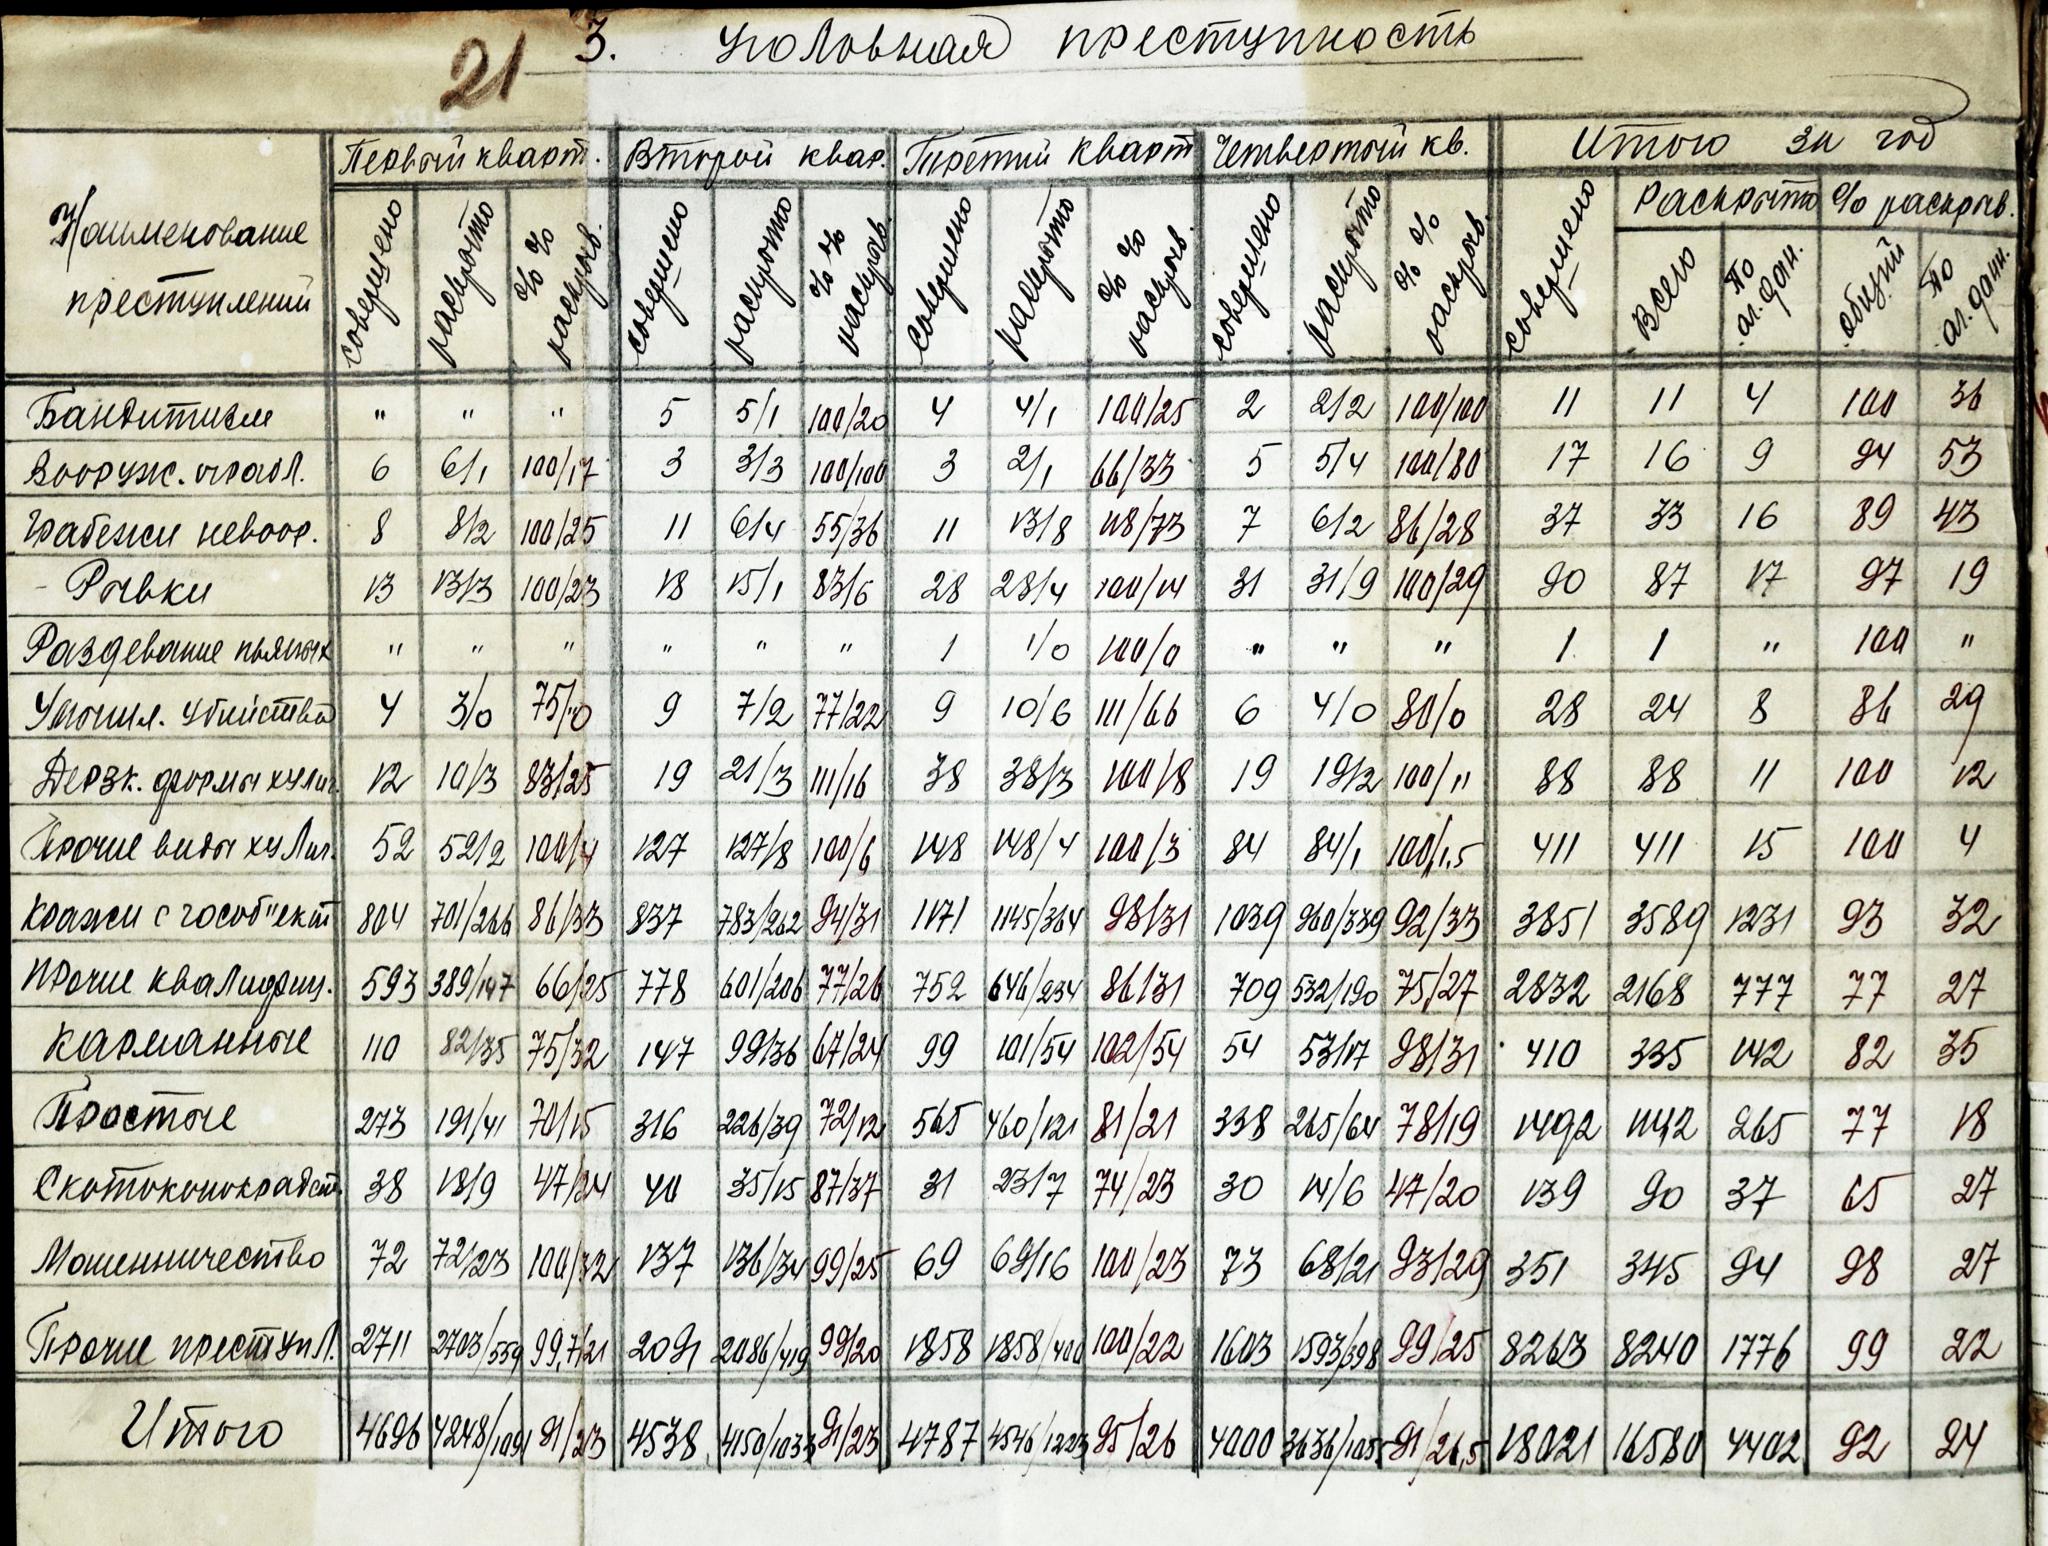 21
3. Уголовная преступность
Наименование преступлений | Первый кварт. | Второй квар. | Третий кварт | Четвертый кв. | Итого за год
совершено | раскрыто | % % раскрыв. | совершено | раскрыто | % % раскрыв. | совершено | раскрыто | % % раскрыв. | совершено | раскрыто | % % раскрыв. | совершено | Раскрыто | % раскрыв.
Всего | По аг. дан. | общий | По аг. данн.
Бандитизм | " | " | " | 5 | 5/1 | 100/20 | 4 | 4/1 | 100/25 | 2 | 2/2 | 100/100 | 11 | 11 | 4 | 100 | 36
Вооруж. ограбл. | 6 | 6/1 | 100/17 | 3 | 3/3 | 100/100 | 3 | 2/1 | 66/33 | 5 | 5/4 | 100/80 | 17 | 16 | 9 | 94 | 53
Грабежи невоор. | 8 | 8/2 | 100/25 | 11 | 6/4 | 55/36 | 11 | 13/8 | 118/73 | 7 | 6/2 | 86/28 | 37 | 33 | 16 | 89 | 43
- Рывки | 13 | 13/3 | 100/23 | 18 | 15/1 | 83/6 | 28 | 28/4 | 100/14 | 31 | 31/9 | 100/29 | 90 | 87 | 17 | 97 | 19
Раздевание пьяных | " | " | " | " | " | " | 1 | 1/0 | 100/0 | " | " | " | 1 | 1 | " | 100 | "
Умышл. убийства | 4 | 3/0 | 75/0 | 9 | 7/2 | 77/22 | 9 | 10/6 | 111/66 | 6 | 4/0 | 80/0 | 28 | 24 | 8 | 86 | 29
Дерзк. формы хулиг. | 12 | 10/3 | 83/25 | 19 | 21/3 | 111/16 | 38 | 38/3 | 100/8 | 19 | 19/2 | 100/11 | 88 | 88 | 11 | 100 | 12
Прочие виды хулиг. | 52 | 52/2 | 100/4 | 127 | 127/8 | 100/6 | 148 | 148/4 | 100/3 | 84 | 84/1 | 100/1,5 | 411 | 411 | 15 | 100 | 4
Кражи с гособ"ект | 804 | 701/266 | 86/33 | 837 | 783/262 | 94/31 | 1171 | 1145/364 | 98/31 | 1039 | 960/339 | 92/33 | 3851 | 3589 | 1231 | 93 | 32
Прочие квалифиц. | 593 | 389/147 | 66/25 | 778 | 601/206 | 77/26 | 752 | 646/234 | 86/31 | 709 | 532/190 | 75/27 | 2832 | 2168 | 777 | 77 | 27
Карманные | 110 | 82/35 | 75/32 | 147 | 99/36 | 67/24 | 99 | 101/54 | 102/54 | 54 | 53/17 | 98/31 | 410 | 335 | 142 | 82 | 35
Простые | 273 | 191/41 | 70/15 | 316 | 226/39 | 72/12 | 565 | 460/121 | 81/21 | 338 | 265/64 | 78/19 | 1492 | 1142 | 265 | 77 | 18
Скотоконокрадст. | 38 | 18/9 | 47/24 | 40 | 35/15 | 87/37 | 31 | 23/7 | 74/23 | 30 | 14/6 | 47/20 | 139 | 90 | 37 | 65 | 27
Мошенничество | 72 | 72/23 | 100/32 | 137 | 136/34 | 99/25 | 69 | 69/16 | 100/23 | 73 | 68/21 | 93/29 | 351 | 345 | 94 | 98 | 27
Прочие преступл. | 2711 | 2703/559 | 99,7/21 | 2091 | 2086/419 | 99/20 | 1858 | 1858/400 | 100/22 | 1603 | 1593/398 | 99/25 | 8263 | 8240 | 1776 | 99 | 22
Итого | 4696 | 4248/1091 | 91/23 | 4538 | 4150/1033 | 91/23 | 4787 | 4546/1223 | 95/26 | 4000 | 3636/1055 | 91/26,5 | 18021 | 16580 | 4402 | 92 | 24